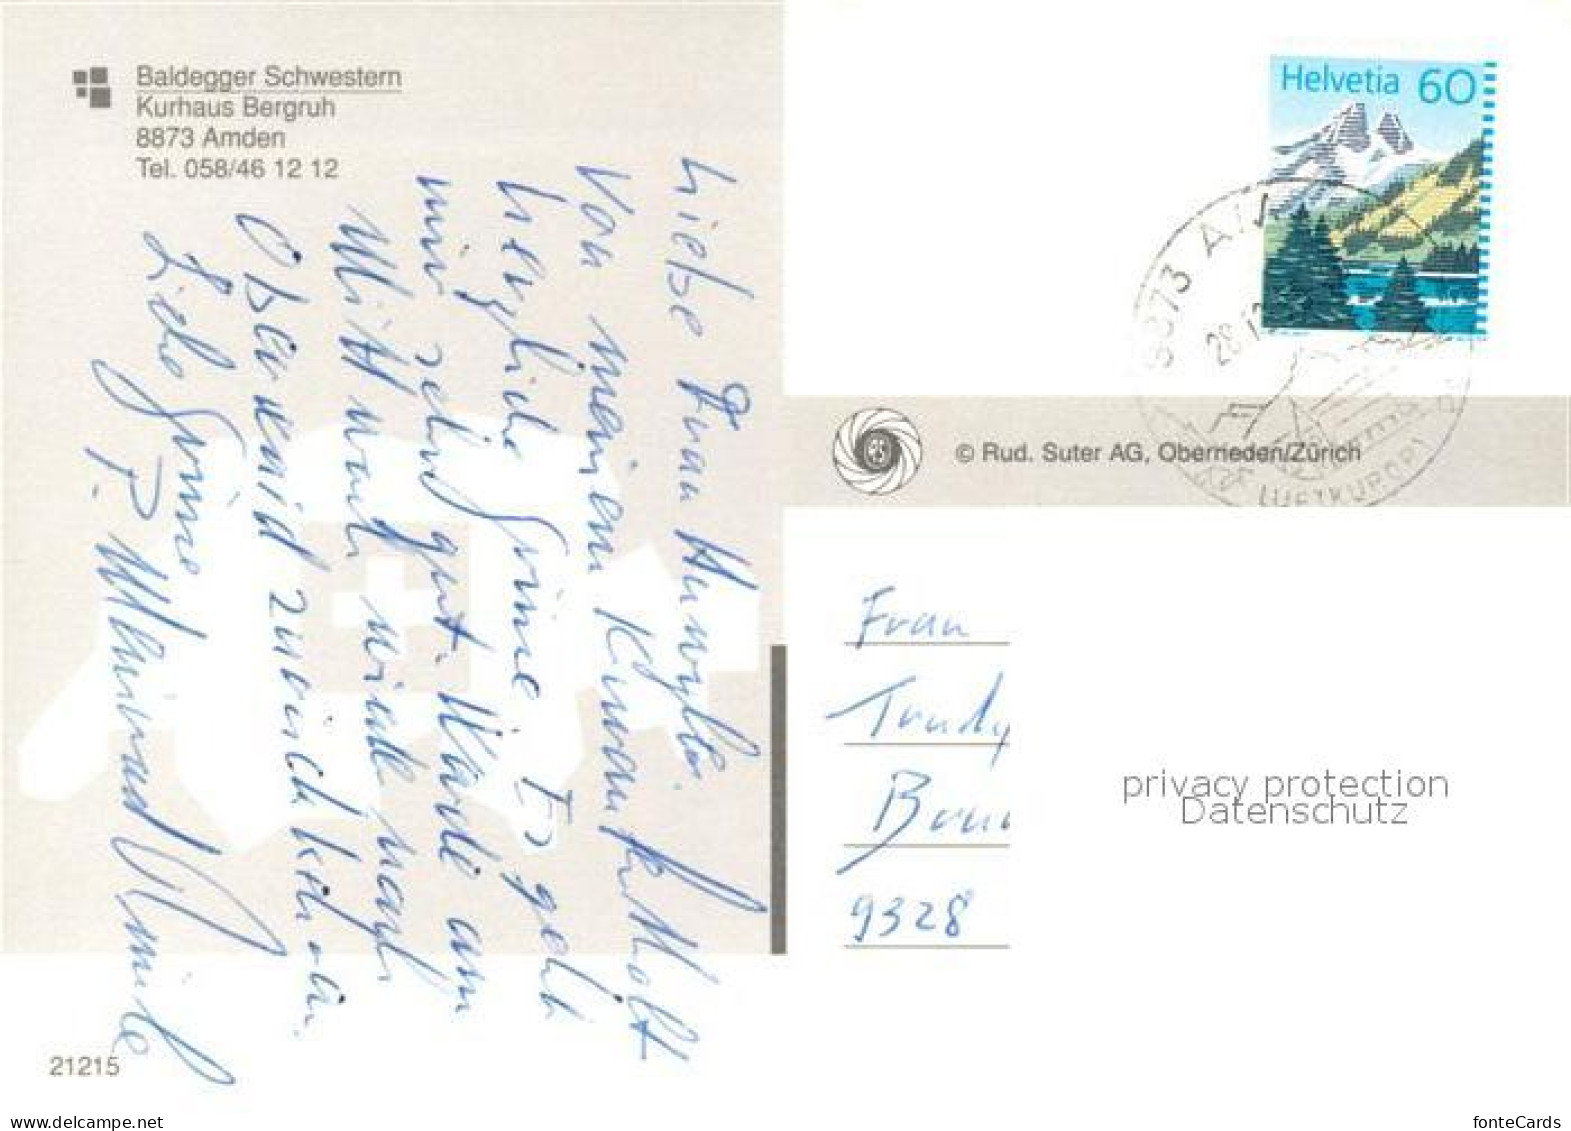 Baldegger Schwestern
Kurhaus Bergruh
8873 Amden
Tel. 058/46 12 12
Liebe Frau Hunzyker
Von meinem Kuraufenthalt
herzliche Grüsse. Es geht
mir sehr gut. Werde am
Mittwoch wieder nach
Oberwaid zurückkehren.
Liebe Grüsse
P.
21215
Helvetia 60
8873
28
LUFTKURORT
© Rud. Suter AG, Oberrieden/Zürich
Frau
Trudy
9328
privacy protection
Datenschutz
www.delcampe.net
fonteCards